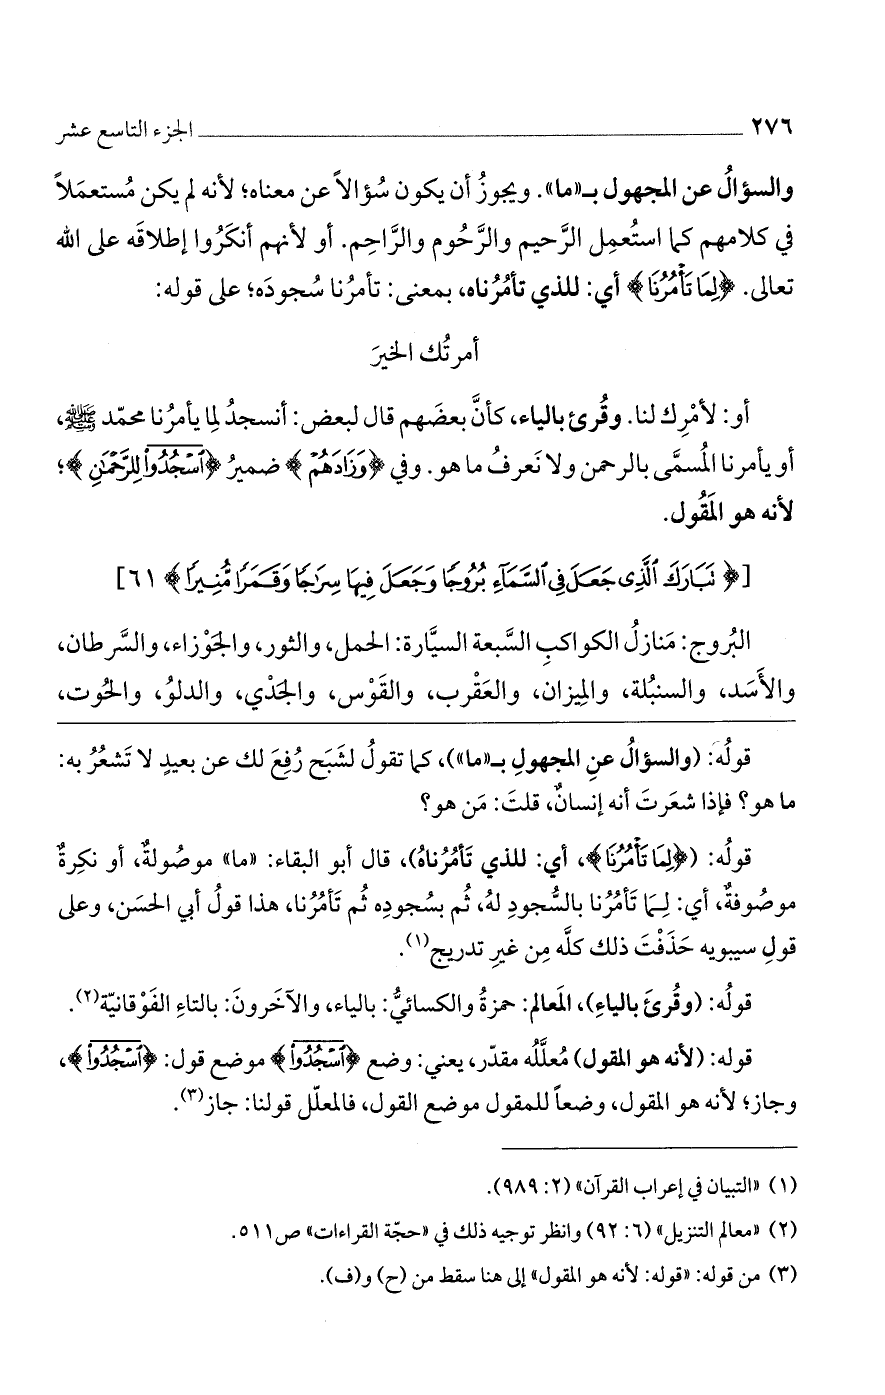 ٢٧٦ ـــــــــــــــــــــ الجزء التاسع عشر
والسؤالُ عن المجهول بـ«ما». ويجوزُ أن يكون سُؤالاً عن معناه؛ لأنه لم يكن مُستعمَلاً
في كلامهم كما استُعمِل الرَّحيم والرَّحُوم والرَّاحِم. أو لأنهم أنكَرُوا إطلاقَه على الله
تعالى. ﴿لِمَا تَأْمُرُنَا﴾ أي: للذي تأمُرُناه، بمعنى: تأمرُنا سُجودَه؛ على قوله:
أمرتُك الخيرَ
أو: لأمْرِك لنا. وقُرئ بالياء، كأنَّ بعضَهم قال لبعض: أنسجدُ لِما يأمرُنا محمّد ﷺ،
أو يأمرنا المُسمَّى بالرحمن ولا نَعرفُ ما هو. وفي ﴿وَزَادَهُمْ﴾ ضميرُ ﴿ٱسْجُدُوا۟ لِلرَّحْمَٰنِ﴾؛
لأنه هو المَقُول.
[﴿تَبَارَكَ ٱلَّذِى جَعَلَ فِى ٱلسَّمَآءِ بُرُوجًا وَجَعَلَ فِيهَا سِرَٰجًا وَقَمَرًا مُّنِيرًا﴾ ٦١]
البُروج: مَنازلُ الكواكبِ السَّبعة السيَّارة: الحمل، والثور، والجَوْزاء، والسَّرطان،
والأَسَد، والسنبُلة، والمِيزان، والعَقْرب، والقَوْس، والجَدْي، والدلوُ، والحُوت،
قولُه: (والسؤالُ عنِ المجهولِ بـ«ما»)، كما تقولُ لشَبَح رُفِعَ لك عن بعيدٍ لا تَشعُرُ به:
ما هو؟ فإذا شعَرتَ أنه إنسانٌ، قلتَ: مَن هو؟
قولُه: (﴿لِمَا تَأْمُرُنَا﴾، أي: للذي تَأمُرُناهُ)، قال أبو البقاء: «ما» موصُولةٌ، أو نكِرةٌ
موصُوفةٌ، أي: لِـمَا تَأمُرُنا بالسُّجودِ لهُ، ثُم بسُجودِه ثُم تَأمُرُنا، هذا قولُ أبي الحسَن، وعلى
قولِ سيبويه حَذَفْتَ ذلك كلَّه مِن غيرِ تدريج(١).
قولُه: (وقُرئَ بالياءِ)، المَعالم: حمزةُ والكسائيُّ: بالياء، والآخَرونَ: بالتاءِ الفَوْقانيّة(٢).
قوله: (لأنه هو المقول) مُعلَّلُه مقدّر، يعني: وضع ﴿ٱسْجُدُوا۟﴾ موضع قول: ﴿ٱسْجُدُوا۟﴾،
وجاز؛ لأنه هو المقول، وضعاً للمقول موضع القول، فالمعلّل قولنا: جاز(٣).
(١) «التبيان في إعراب القرآن» (٢: ٩٨٩).
(٢) «معالم التنزيل» (٦: ٩٢) وانظر توجيه ذلك في «حجّة القراءات» ص٥١١.
(٣) من قوله: «قوله: لأنه هو المقول» إلى هنا سقط من (ح) و(ف).